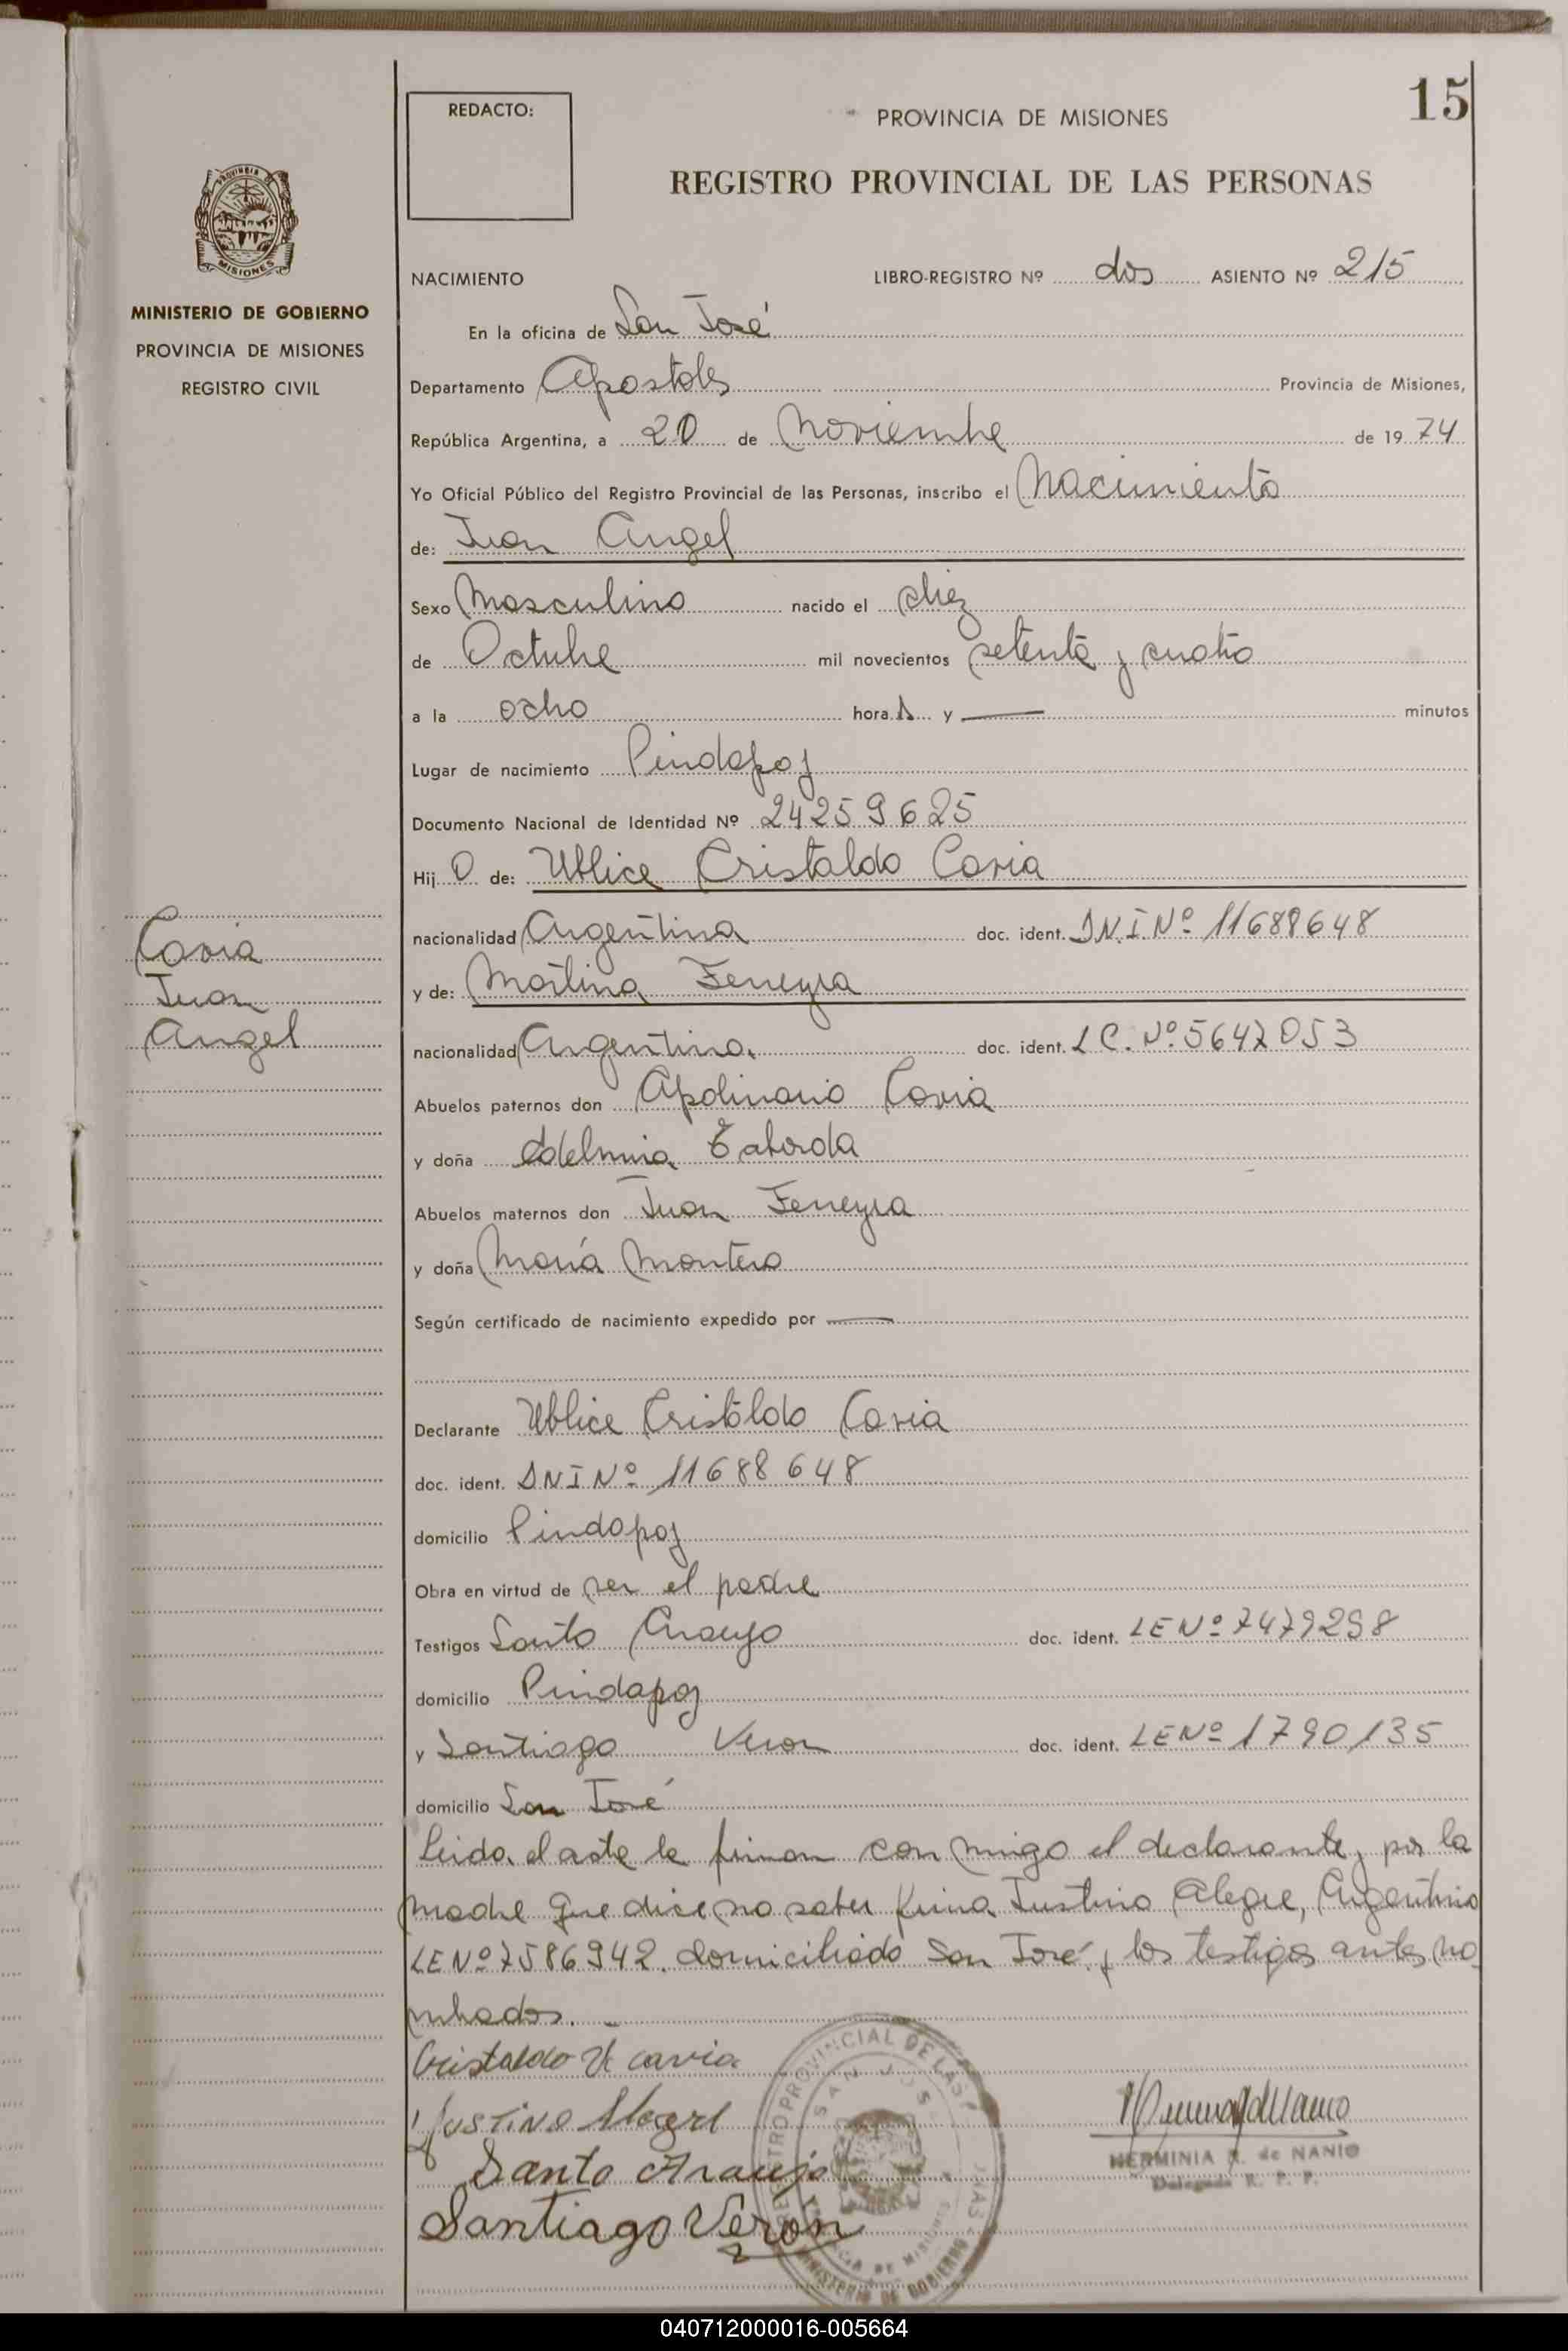 15
REDACTO:
PROVINCIA DE MISIONES
REGISTRO PROVINCIAL DE LAS PERSONAS
PROVINCIA DE
MISIONES
MINISTERIO DE GOBIERNO
PROVINCIA DE MISIONES
REGISTRO CIVIL
NACIMIENTO LIBRO-REGISTRO Nº dos ASIENTO Nº 215
En la oficina de San José
Departamento Apostoles Provincia de Misiones,
República Argentina, a 20 de Noviembre de 1974
Yo Oficial Público del Registro Provincial de las Personas, inscribo el Nacimiento
de: Juan Angel
Sexo Masculino nacido el diez
de Octubre mil novecientos setenta y cuatro
a la ocho hora s y — minutos
Lugar de nacimiento Pindapoy
Documento Nacional de Identidad Nº 24259625
Hij o de: Ublice Cristaldo Cavia
nacionalidad Argentina doc. ident. DNI Nº 11688648
y de: Martina Ferreyra
nacionalidad Argentina. doc. ident. LC. Nº 5642053
Abuelos paternos don Apolinario Cavia
y doña Edelmira Taborda
Abuelos maternos don Juan Ferreyra
y doña María Montero
Según certificado de nacimiento expedido por —
Declarante Ublice Cristaldo Cavia
doc. ident. DNI Nº 11688648
domicilio Pindapoy
Obra en virtud de ser el padre
Testigos Santo Araujo doc. ident. LE Nº 7479298
domicilio Pindapoy
y Santiago Veron doc. ident. LE Nº 1790135
domicilio San José
Leida el acta la firman con migo el declarante, por la
madre que dice no saber firma Justino Alegre, Argentino
LE Nº 7586942. domiciliado San José y los testigos antes no
mbrados. —
Cristaldo U Cavia
Justino Alegre
Santo Araujo
Santiago Verón
HERMINIA R. de NANIO
Delegada R. P. P.
REGISTRO PROVINCIAL DE LAS
SAN JOSE
MINISTERIO DE GOBIERNO
Cavia
Juan
Angel
040712000016-005664